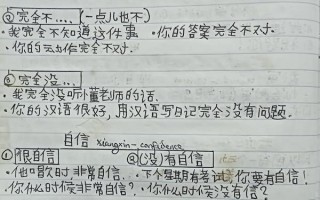 ② 完全不.... (一点儿也不)
• 我完全不知道这件事 • 你的答案完全不对.
• 你的动作完全不对.
③ 完全没....
• 我完全没听懂老师的话.
• 你的汉语很好, 用汉语写日记完全没有问题.
自信 - confidence
① 很自信 ② (没)有自信
• 他唱歌时非常自信. • 下个星期有考试, 你要有自信!
你什么时候非常自信? • 你什么时候没有信?